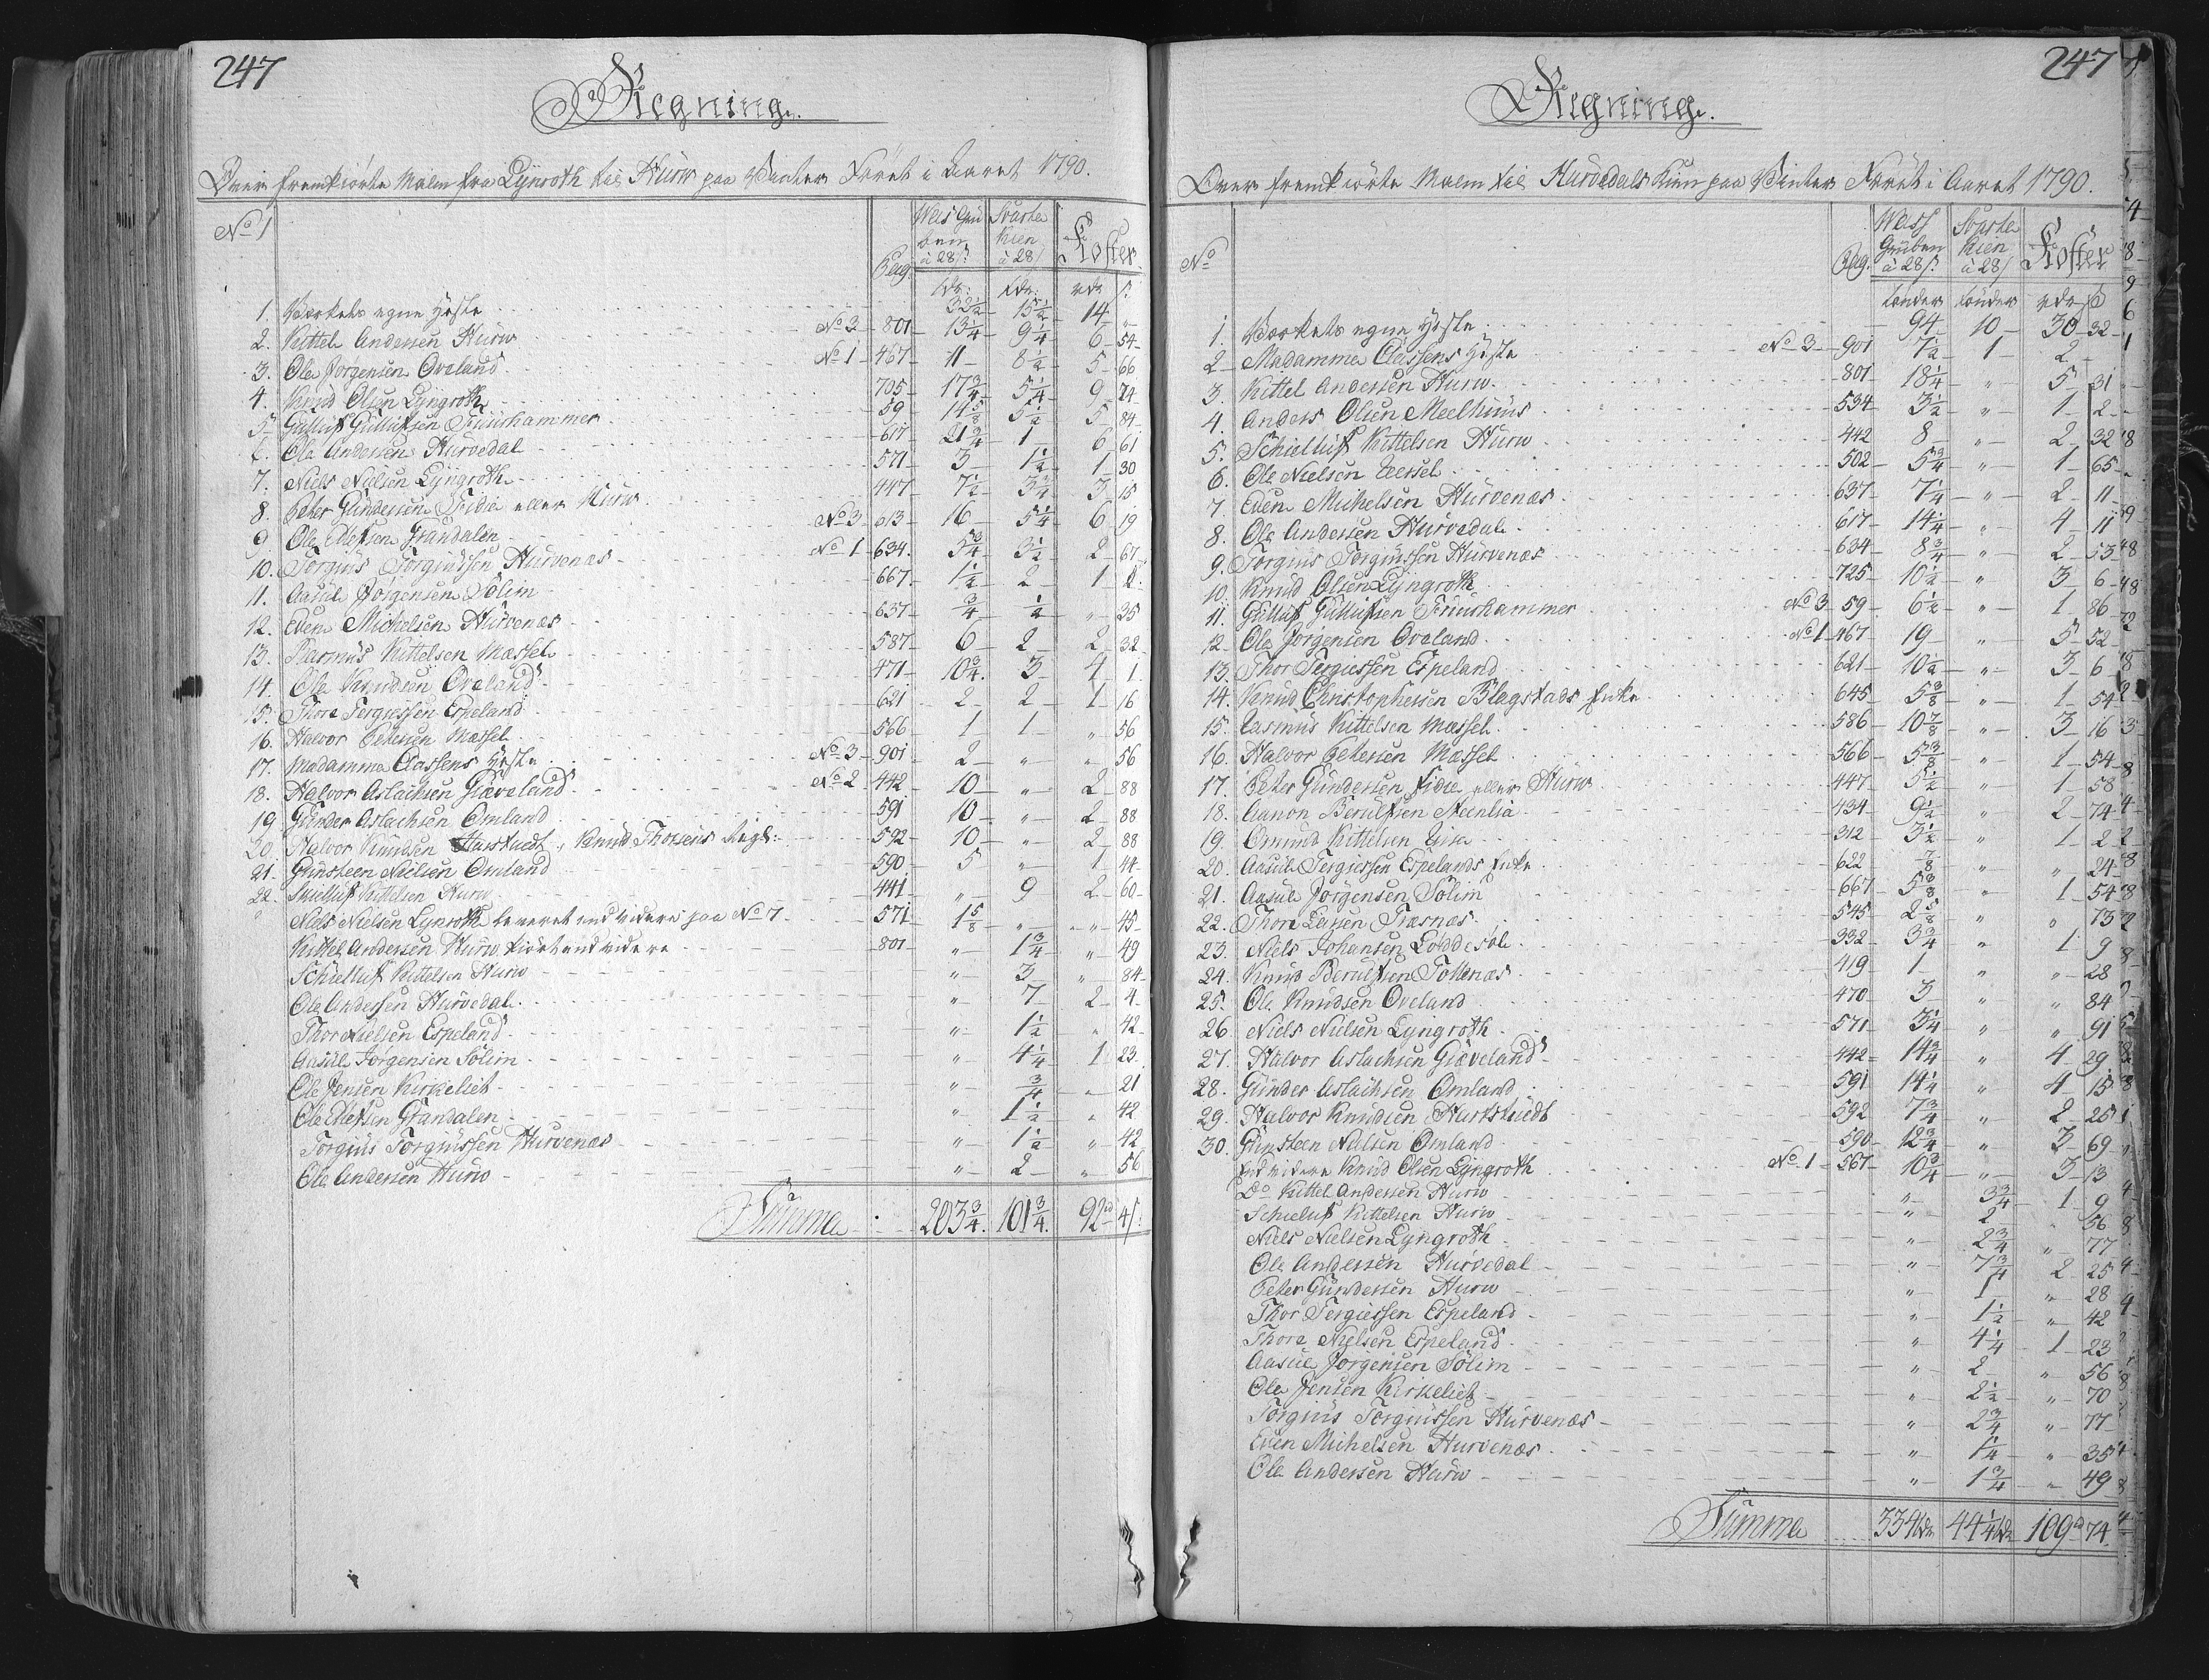 247
Regning.
Over fremkiörte Malm fra Lyngroth til Hurw paa Winter Föret i Aaret 1790.
No 1 Pag. Weis Gruben à 28 s. Svarte Kien à 28 s. Koster
tdr: tdr: rdr s:
1. Værkets egne Heste 33½ 15½ 14 "
2. Kittel Andersen Hurw No 3 801 13¼ 9¼ 6 54
3. Ole Jörgensen Oveland No 1 467 11 8½ 5 66
4. Knud Olsen Lyngroth 705 17¾ 5¼ 9 74
5. Gulluf Gullufsen Fruushammer 59 14⅝ 5½ 5 84
6. Ole Andersen Hurvedal 617 21¾ 1 6 61
7. Niels Nielsen Lyngroth 571 3 1½ 1 30
8. Peter Gundersen Fidie eller Hurw 447 7½ 3¾ 3 15
9. Ole Olefsen Grandalen No 3 613 16 5¼ 6 19
10. Torgius Torgiussen Hurvenæs No 1 634 5¾ 3½ 2 67
11. Aasul Jörgensen Solim 667 1½ 2 1 2
12. Even Michelsen Hurvenæs 637 ¾ ½ " 35
13. Rasmus Kittelsen Mæssel 587 6 2 2 32
14. Ole Knudsen Oveland 471 10¾ 3 4 1
15. Thore Tergiessen Espeland 621 2 2 1 16
16. Halvor Petersen Mæssel 566 1 1 " 56
17. Madamme Classens Heste No 3 901 2 " " 56
18. Halvor Aslachsen Giæveland No 2 442 10 " 2 88
19. Gunder Aslachsen Omland 591 10 " 2 88
20. Halvor Knudsen Harstvedt, Knud Thorsens 592 10 " 2 88
21. Gunsteen Nielsen Omland 590 5 " 1 44
22. Skielluf Kittelsen Hurw 441 " 9 2 60
" Niels Nielsen Lyngroth leveret endvidere paa No 7 571 1⅝ " " 45
Kittel Andersen Hurw kiört endvidere 801 " 1¾ " 49
Schielluf Kittelsen Hurw " 3 " 84
Ole Andersen Hurvedal " 7 2 4
Thor Nielsen Espeland " 1½ " 42
Aasul Jörgensen Solim " 4¼ 1 23
Ole Jensen Kirkeliet " ¾ " 21
Ole Olefsen Grandalen " 1½ " 42
Torgius Torgiussen Hurvenæs " 1½ " 42
Ole Andersen Hurw " 2 " 56
Summa 203¾. 101¾. 92rd 4 s.
247
Regning.
Over fremkiörte Malm til Hurvedals Kien paa Winter Föret i Aaret 1790.
No Pag. Weiss Gruben à 28 s. Svarte Kien à 28 s Koster
tönder tönder rdr s
1. Værkets egne Heste 94 10 30 32
2. Madamme Classens Heste No 3 901 7½ 1 2 "
3. Kittel Andersen Hurw 801 18¼ " 5 31
4. Anders Olsen Meelhuus 534 3½ " 1 2
5. Schielluf Kittelsen Hurw 442 8 " 2 32
6. Ole Nielsen Eersel 502 5¾ " 1 65
7. Even Michelsen Hurvenæs 637 7¼ " 2 11
8. Ole Andersen Hurvedal 617 14¼ " 4 11
9. Torgius Torgiussen Hurvenæs 634 8¾ " 2 53
10. Knud Olsen Lyngroth 725 10½ " 3 6
11. Gulluf Gullufsen Fruushammer No 3 59 6½ " 1 86
12. Ole Jörgensen Oveland No 1 467 19 " 5 52
13. Thor Tergiessen Espeland 621 10½ " 3 6
14. Knud Christophersen Blagstads Enke 645 5⅜ " 1 54
15. Rasmus Kittelsen Mæssel 586 10⅞ " 3 16
16. Halvor Petersen Mæssel 566 5⅜ " 1 54
17. Peter Gundersen Fidie eller Hurw 447 5½ " 1 58
18. Aanon Berulfsen Steenlia 434 9½ " 2 74
19. Omund Kittelsen Eisa 312 3½ " 1 2
20. Aasul Tergiessen Espelands Enke 622 ⅞ " " 24
21. Aasul Jörgensen Solim 667 5⅜ " 1 54
22. Thore Larsen Træsnæs 545 2⅝ " " 73
23. Niels Johansen Löddesöl 332 3¾ " 1 9
24. Knud Berulfsen Tolknæs 419 1 " " 28
25. Ole Knudsen Oveland 470 3 " " 84
26. Niels Nielsen Lyngroth 571 3¼ " " 91
27. Halvor Aslachsen Giæveland 442 14¾ " 4 29
28. Gunder Aslachsen Omland 591 14¼ " 4 15
29. Halvor Knudsen Harstvedt 592 7¾ " 2 25
30. Gunsteen Nielsen Omland 590 12¾ " 3 69
Endvidere Knud Olsen Lyngroth No 1 567 10¾ " 3 13
Do Kittel Andersen Hurw " 3¾ 1 9
Schielluf Kittelsen Hurw " 2 " 56
Niels Nielsen Lyngroth " 2¾ " 77
Ole Andersen Hurvedal " 7¾ 2 25
Peter Gundersen Hurw " 1 " 28
Thor Tergiessen Espeland " 1½ " 42
Thore Nielsen Espeland " 4¼ 1 23
Aasul Jörgensen Solim " 2 " 56
Ole Jensen Kirkeliet " 2½ " 70
Torgius Torgiussen Hurvenæs " 2¾ " 77
Even Michelsen Hurvenæs " 1¼ " 35
Ole Andersen Hurw " 1¾ " 49
Summa 334 tdr 44¼ tdr 109rd 74